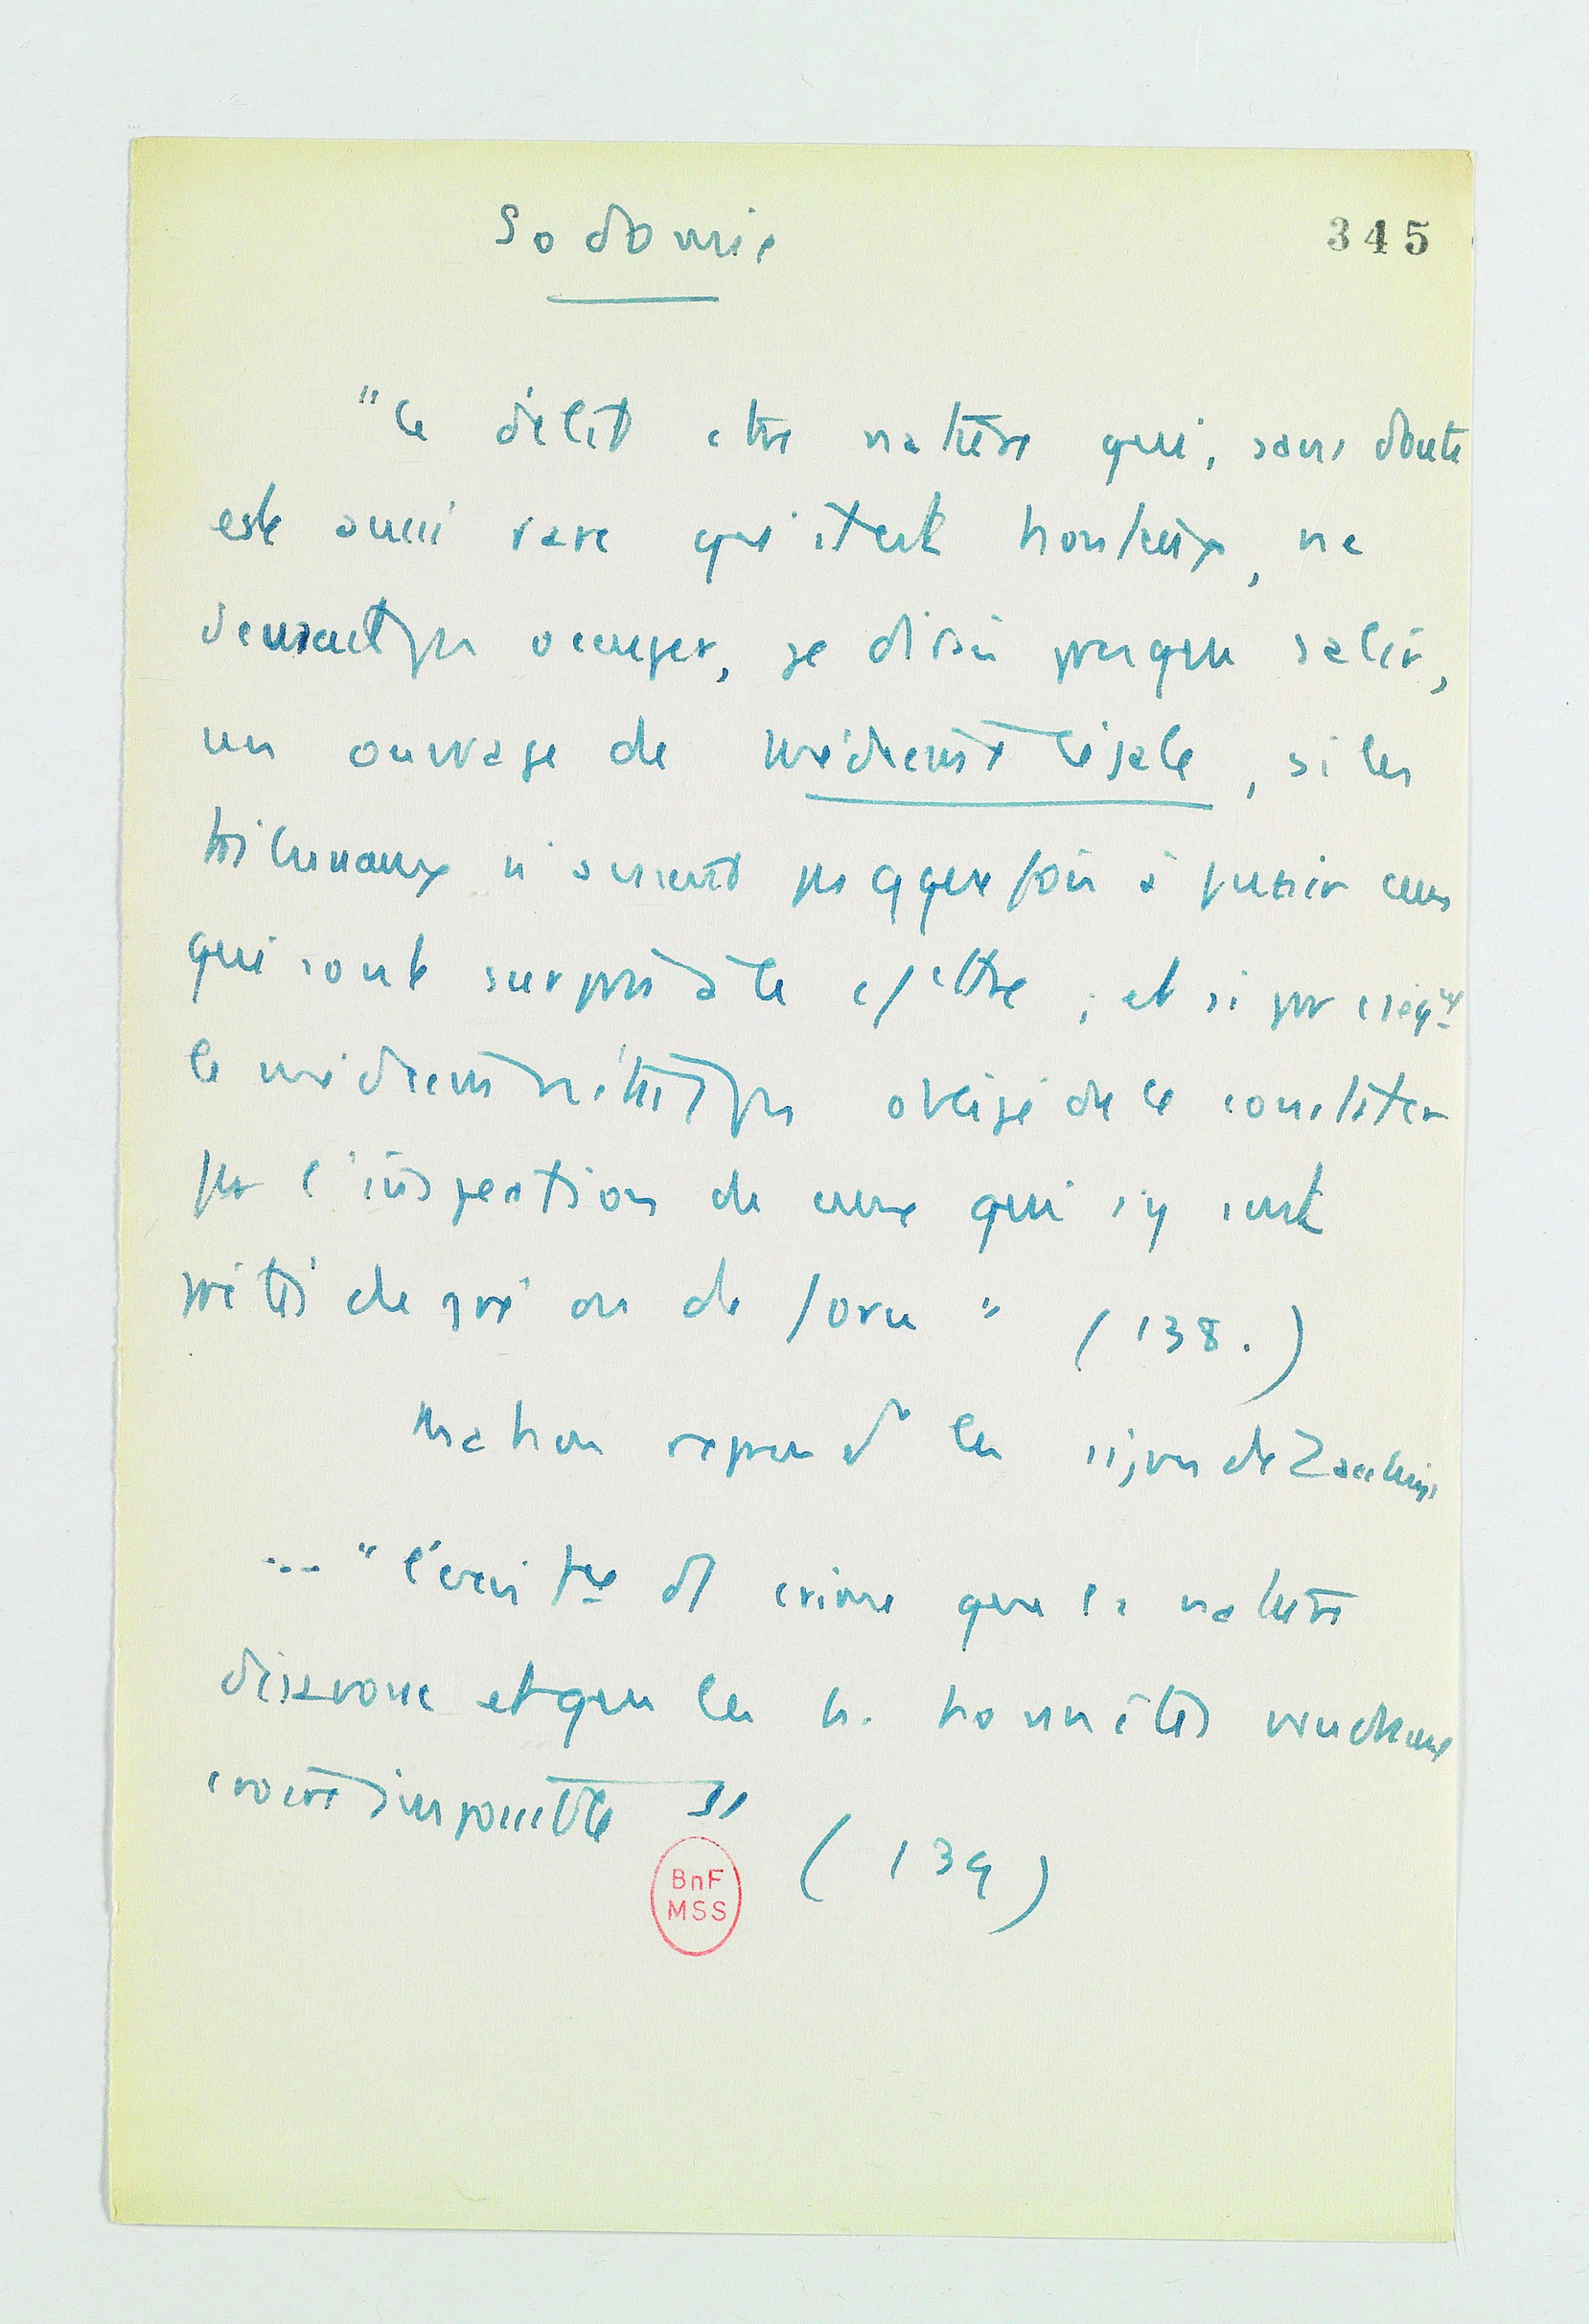 Sodomie
345
"Ce délit ctre nature qui, sans doute
est aussi rare qu'il est honteux, ne
devrait pas occuper, je dirai presque salir,
un ouvrage de médecine légale, si les
tribunaux n'avaient pas qques fois à punir ceux
qui sont surpris à le ; et si par
le médecin n'était pas obligé de le constater
par l'inspection de ceux qui s'y sont
prêtés de gré ou de force" (138.)
Mahon reprend les signes de Zacchias
... " crime que la nature
désavoue et que les h. honnêtes
croire impossible" (139)
BnF
MSS